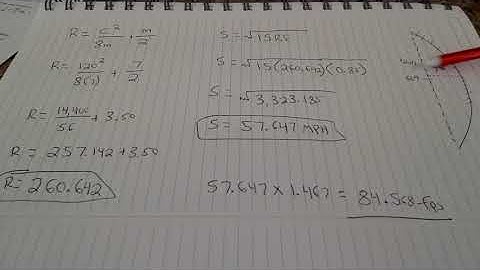 R = C² / 8m + m / 2
R = 120² / 8(7) + 7 / 2
R = 14,400 / 56 + 3.50
R = 257.142 + 3.50
R = 260.642
S = √15RF
S = √15(260.642)(0.85)
S = √3,323.185
S = 57.647 MPH
57.647 x 1.467 = 84.568 fps